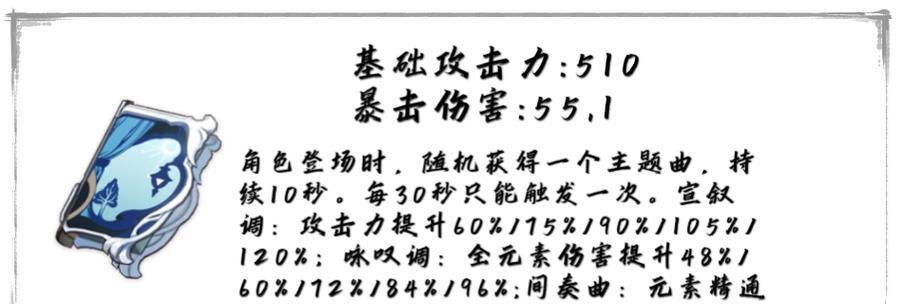 基础攻击力:510
暴击伤害:55.1
角色登场时，随机获得一个主题曲，持
续10秒。每30秒只能触发一次。宣叙
调：攻击力提升60%/75%/90%/105%/
120%；咏叹调：全元素伤害提升48%/
60%/72%/84%/96%;间奏曲：元素精通